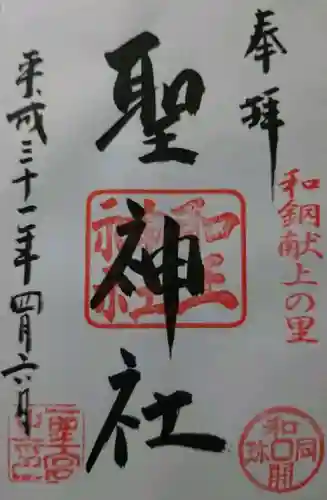 奉拝
和銅献上の里
聖神社
平成三十一年四月六日
聖神社
和同開珎